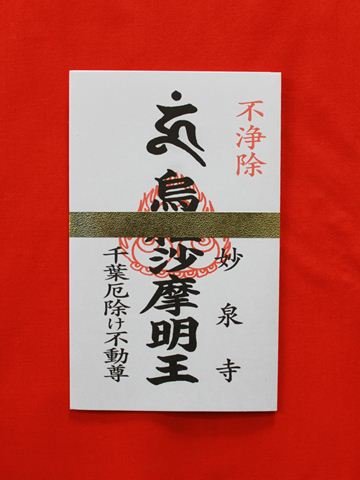 不浄除
妙泉寺
烏沙摩明王
千葉厄除け不動尊